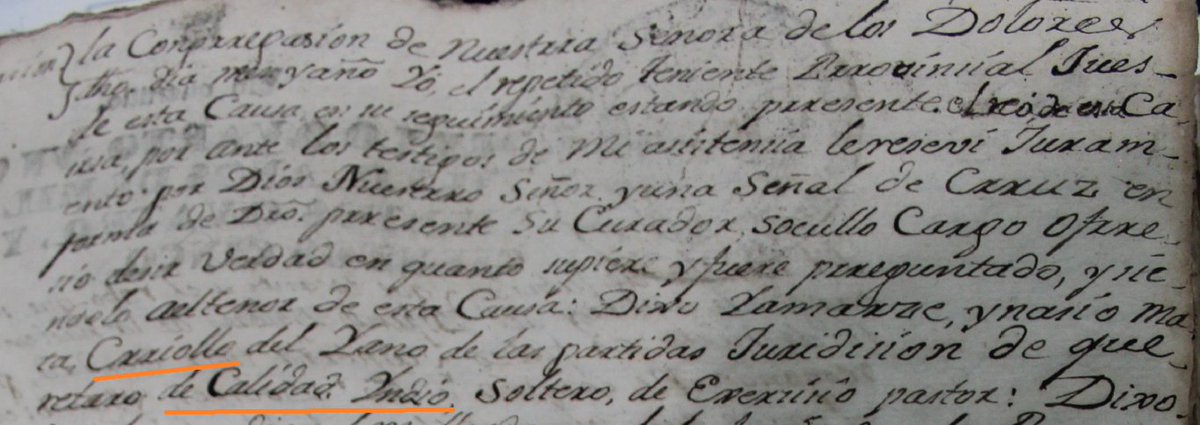 la Congrregasion de Nuestrra Señora de los Dolores
dho. dia mes y año Yo, el repetido teniente Prrovinsial Jues
de esta Causa en su seguimiento estando prresente. el reo de esta Ca-
usa, por ante los testigos de mi asistensia le resevi Juram-
ento por Dios Nuestrro Señor y una Señal de Crruz en
forma de Dro. prresente Su Curador, socullo Cargo Ofrre-
sio desir Verdad en quanto supiere y fuere prreguntado, y sie-
ndolo al tenor de esta Causa: Dixo Yamarse, Ygnasio Ma-
ta, Crriollo del Yano de las partidas Juridision de que-
retaro de Calidad Yndio, Soltero, de Exersisio pastor: Dixo